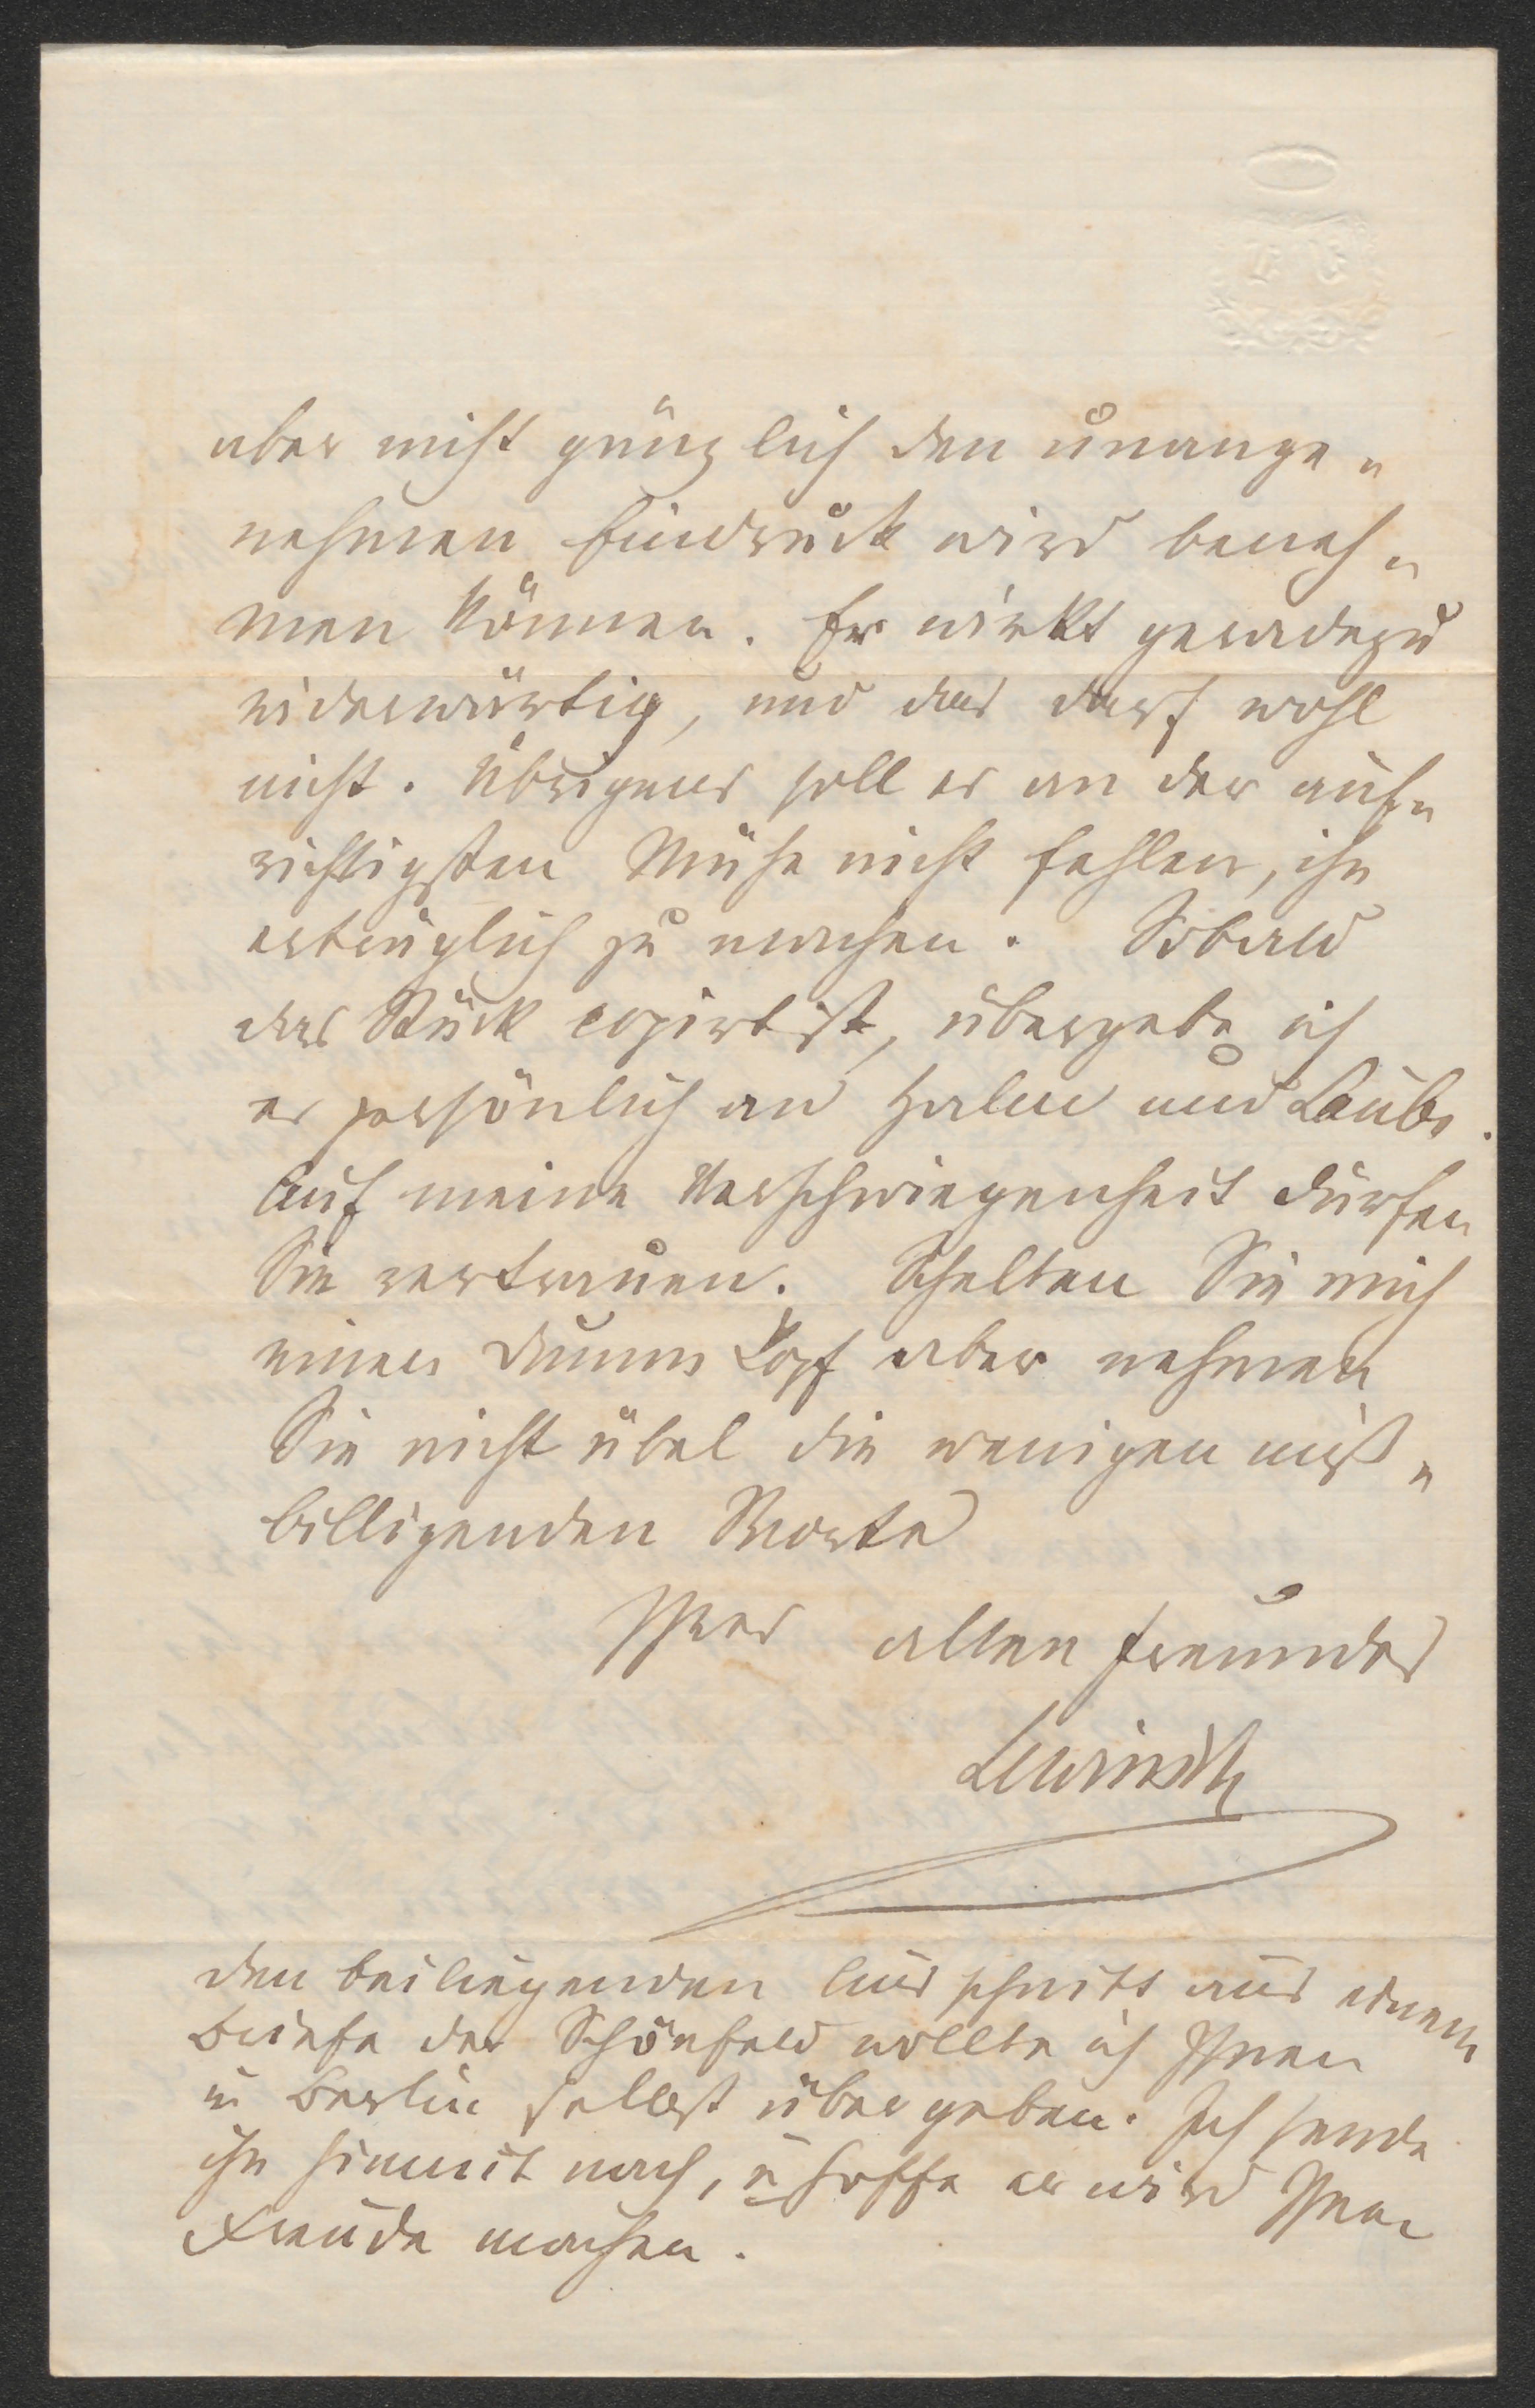 aber nicht gänzlich den unange-
nehmen Eindruck wird beneh-
men können. Er wirkt geradezu
widerwärtig, und das darf wohl
nicht. Übrigens soll es an der auf-
richtigsten Mühe nicht fehlen, ihn
erträglich zu machen. Sobald
das Stück copirt ist, übergebe ich
es persönlich an Halm und Laube.
Auf meine Verschwiegenheit dürfen
Sie vertrauen. Schelten Sie mich
einen Dummkopf aber nehmen
Sie nicht übel die wenigen miß-
billigenden Worte
Ihres alten Freundes
Lewinsky
Den beiliegenden Ausschnitt aus einem
Briefe der Schönfeld wollte ich Ihnen
in Berlin selbst übergeben. Ich sende
ihn hiemit nach, u hoffe er wird Ihnen
Freude machen.